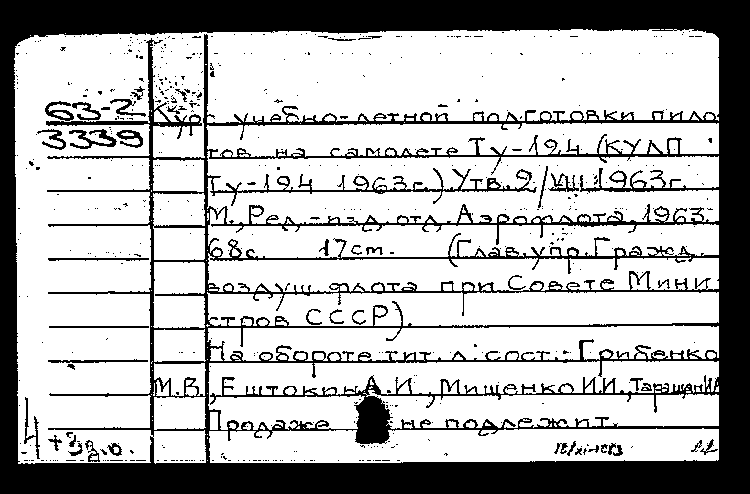 63-2
3339
Курс учебно-летной подготовки пило-
тов на самолете Ту-124 (КУЛП
Ту-124 1963г.) Утв. 2/VIII 1963г.
М., Ред.-изд. отд. Аэрофлота, 1963.
68с. 17см. (Глав. упр. Гражд.
воздуш. флота при Совете Мини-
стров СССР).
На обороте тит. л. сост.: Грибенко
М.В., Ештокин А.И., Мищенко И.И., Таращан
Продаже не подлежит.